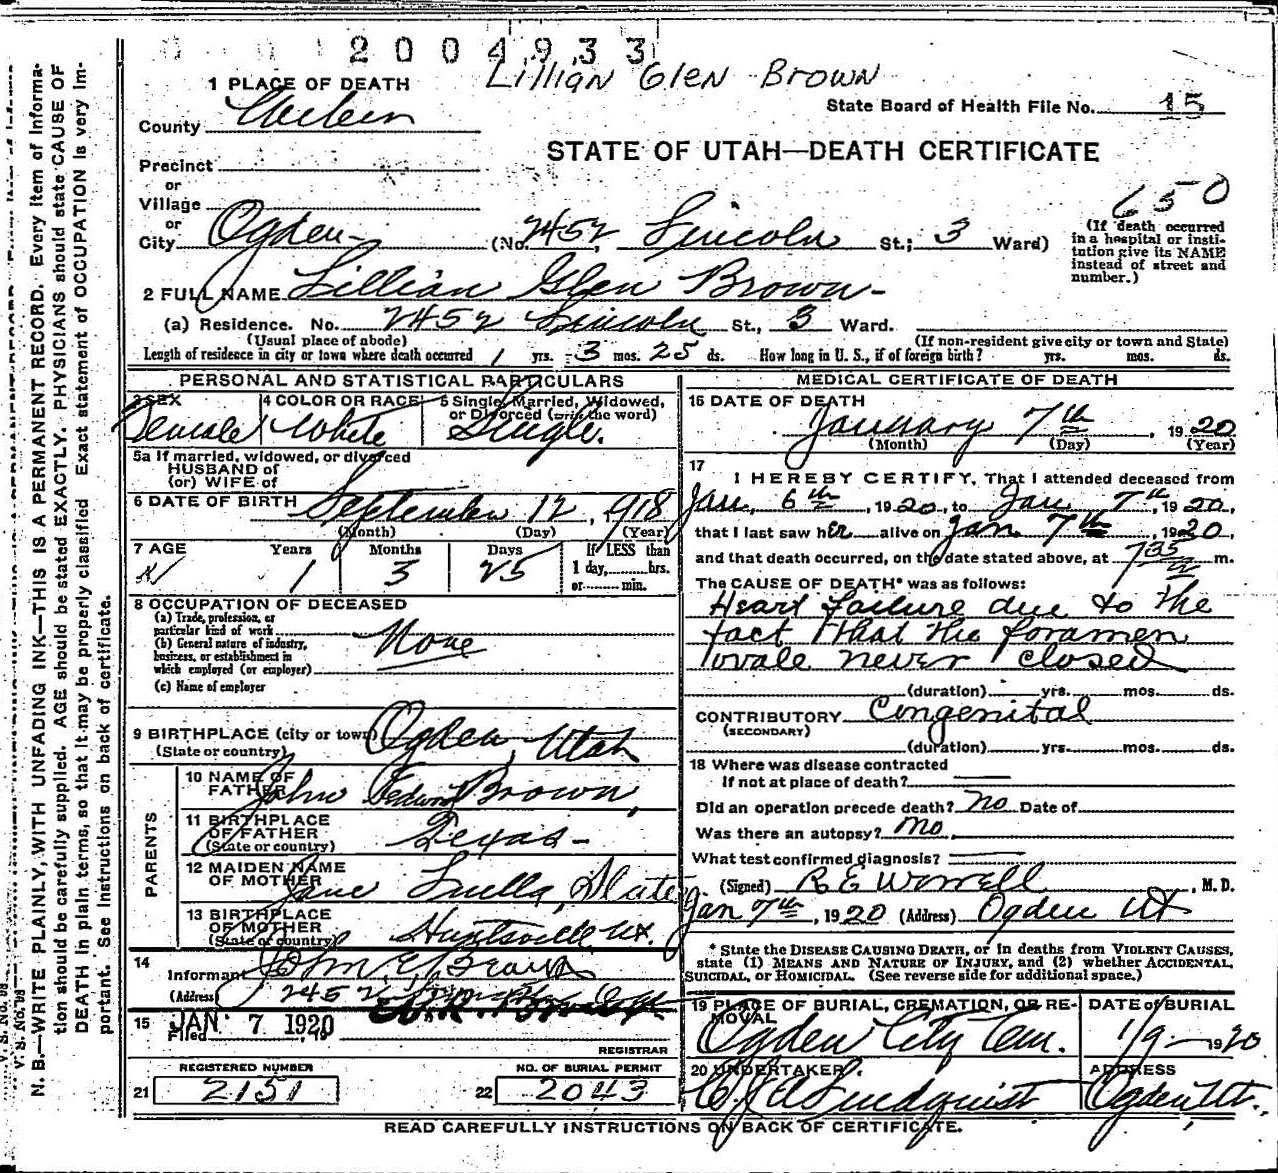 2004933
Lillian Glen Brown
1 PLACE OF DEATH
State Board of Health File No. 15
County Weber
STATE OF UTAH—DEATH CERTIFICATE
Precinct
or
Village
or
650
City Ogden (No. 2452, Lincoln St.; 3 Ward)
(If death occurred in a hospital or institution give its NAME instead of street and number.)
2 FULL NAME Lillian Glen Brown
(a) Residence. No. 2452 Lincoln St., 3 Ward.
(Usual place of abode) (If non-resident give city or town and State)
Length of residence in city or town where death occurred 1 yrs. 3 mos. 25 ds. How long in U. S., if of foreign birth? yrs. mos. ds.
PERSONAL AND STATISTICAL PARTICULARS
3 SEX
Female
4 COLOR OR RACE
White
5 Single, Married, Widowed,
or Divorced (write the word)
Single.
5a If married, widowed, or divorced
HUSBAND of
(or) WIFE of
6 DATE OF BIRTH September 12, 1918
(Month) (Day) (Year)
7 AGE Years Months Days If LESS than
1 3 25 1 day, hrs.
or min.
8 OCCUPATION OF DECEASED
(a) Trade, profession, or
particular kind of work
(b) General nature of industry,
business, or establishment in
which employed (or employer)
None
(c) Name of employer
9 BIRTHPLACE (city or town) Ogden, Utah
(State or country)
PARENTS
10 NAME OF
FATHER John Brown,
11 BIRTHPLACE
OF FATHER Texas
(State or country)
12 MAIDEN NAME
OF MOTHER Jane Luella Slater
13 BIRTHPLACE
OF MOTHER Huntsville, Ut.
(State or country)
14
Informant John E. Brown
(Address) 2452
15 JAN 7 1920
Filed , 19
REGISTRAR
REGISTERED NUMBER
21 2151
NO. OF BURIAL PERMIT
22 2043
MEDICAL CERTIFICATE OF DEATH
16 DATE OF DEATH
January 7th, 1920
(Month) (Day) (Year)
17
I HEREBY CERTIFY, That I attended deceased from
Jan. 6th, 1920, to Jan. 7th, 1920,
that I last saw her alive on Jan 7th, 1920,
and that death occurred, on the date stated above, at 735 a m.
The CAUSE OF DEATH* was as follows:
Heart failure due to the
fact that the foramen
ovale never closed
(duration) yrs. mos. ds.
CONTRIBUTORY Congenital
(SECONDARY)
(duration) yrs. mos. ds.
18 Where was disease contracted
If not at place of death?
Did an operation precede death? No Date of
Was there an autopsy? No
What test confirmed diagnosis?
(Signed) R E Worrell, M. D.
Jan 7th, 1920 (Address) Ogden Ut
* State the DISEASE CAUSING DEATH, or in deaths from VIOLENT CAUSES,
state (1) MEANS AND NATURE OF INJURY, and (2) whether ACCIDENTAL,
SUICIDAL, or HOMICIDAL. (See reverse side for additional space.)
19 PLACE OF BURIAL, CREMATION, OR REMOVAL
Ogden City Cem.
DATE of BURIAL
1/9 1920
20 UNDERTAKER
Lindquist
ADDRESS
Ogden, Ut.
READ CAREFULLY INSTRUCTIONS ON BACK OF CERTIFICATE.
N. B.—WRITE PLAINLY, WITH UNFADING INK—THIS IS A PERMANENT RECORD. Every item of informa-
tion should be carefully supplied. AGE should be stated EXACTLY. PHYSICIANS should state CAUSE OF
DEATH in plain terms, so that it may be properly classified. Exact statement of OCCUPATION is very im-
portant. See instructions on back of certificate.